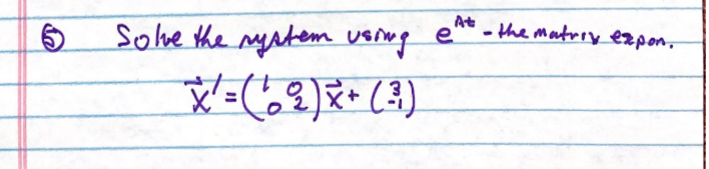 ⑤ Solve the system using e^{At} - the matrix expon.
x⃗' = (1 0
0 2) x⃗ + (3
-1)